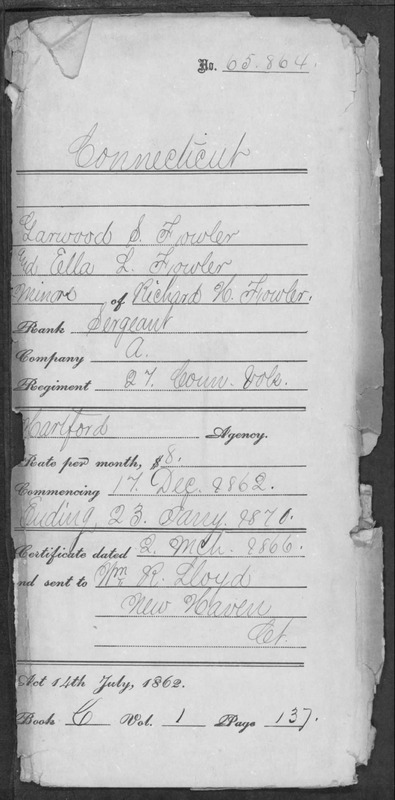 No. 65.864.
Connecticut
Garwood S. Fowler
Gd Ella L. Fowler
Minors of Richard H. Fowler,
Rank Sergeant
Company A.
Regiment 27. Conn. Vols.
Hartford Agency.
Rate per month, $8.
Commencing 17. Dec. 1862.
Ending, 23. Jany. 1870.
Certificate dated 2. Mch. 1866.
nd sent to Wm R. Lloyd
New Haven
Ct.
Act 14th July, 1862.
Book C Vol. 1 Page 137.